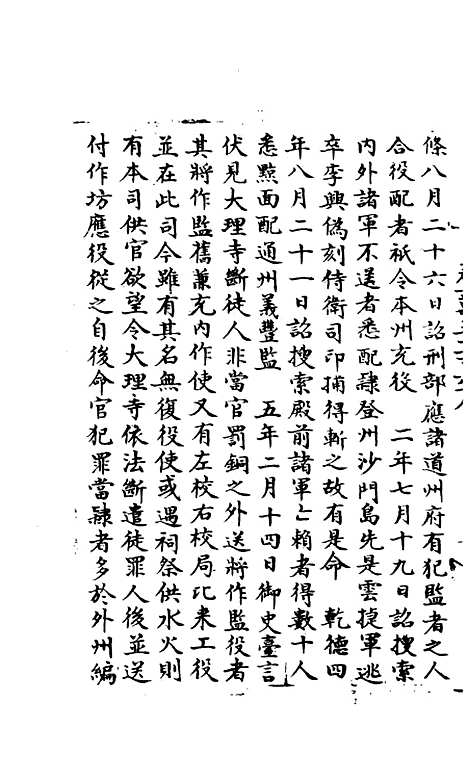 條八月二十六日詔刑部應諸道州府有犯監者之人
合役配者祇令本州充役　二年七月十九日詔搜索
內外諸軍不送者悉配隸登州沙門島先是雲捷軍逃
卒李興偽刻侍衛司印捕得斬之故有是命　乾德四
年八月二十一日詔搜索殿前諸軍亡賴者得數十人
悉黥面配通州義豐監　五年二月十四日御史臺言
伏見大理寺斷徒人非當官罰銅之外送將作監役者
其將作監舊兼充內作使又有左校右校局比来工役
並在此司今雖有其名無復役使或遇祠祭供水火則
有本司供官欲望令大理寺依法斷遣徒罪人後並送
付作坊應役從之自後命官犯罪當隸者多於外州編